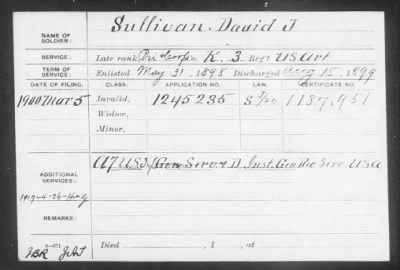 NAME OF SOLDIER: Sullivan. David J
SERVICE: Late rank, Pvt & Corp Co. K. 3. Reg't US Art
TERM OF SERVICE: Enlisted May 31, 1898 Discharged Aug 15, 1899
DATE OF FILING. CLASS. APPLICATION NO. LAW. CERTIFICATE NO.
1900 Mar 5 Invalid, 1245235 1187,951
Widow,
Minor,
ADDITIONAL SERVICES: Gen Serv. & D Inst. Gen Rec Serv. USA
1917-4-26
REMARKS:
Died , 1 , at